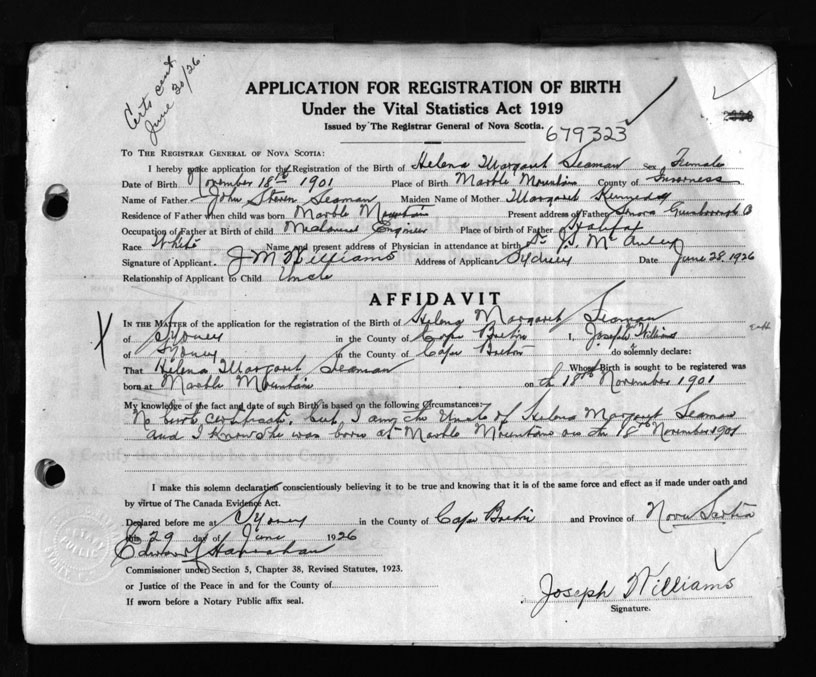 Certs sent
June 30/26.
APPLICATION FOR REGISTRATION OF BIRTH
Under the Vital Statistics Act 1919
Issued by The Registrar General of Nova Scotia.
679323
TO THE REGISTRAR GENERAL OF NOVA SCOTIA:
I hereby make application for the Registration of the Birth of Helena Margaret Seaman Sex Female
Date of Birth November 18th 1901 Place of Birth Marble Mountain County of Inverness
Name of Father John Steven Seaman Maiden Name of Mother Margaret Kennedy
Residence of Father when child was born Marble Mountain Present address of Father Sonora
Occupation of Father at Birth of child Engineer Place of birth of Father Halifax
Race White Name and present address of Physician in attendance at birth Dr
Signature of Applicant. J M Williams Address of Applicant Sydney Date June 28. 1926
Relationship of Applicant to Child Uncle
AFFIDAVIT
IN THE MATTER of the application for the registration of the Birth of Helena Margaret Seaman
of Sydney in the County of Cape Breton I, Joseph Williams
of Sydney in the County of Cape Breton do solemnly declare:
That Helena Margaret Seaman Whose Birth is sought to be registered was
born at Marble Mountain on the 18th November 1901
My knowledge of the fact and date of such Birth is based on the following Circumstances:
No birth certificate, but I am the Uncle of Helena Margaret Seaman
and I know she was born at Marble Mountain on the 18th November 1901
I make this solemn declaration conscientiously believing it to be true and knowing that it is of the same force and effect as if made under oath and
by virtue of The Canada Evidence Act.
Declared before me at Sydney in the County of Cape Breton and Province of Nova Scotia
this 29 day of June 1926
Commissioner under Section 5, Chapter 38, Revised Statutes, 1923.
or Justice of the Peace in and for the County of
If sworn before a Notary Public affix seal.
Joseph Williams
Signature.